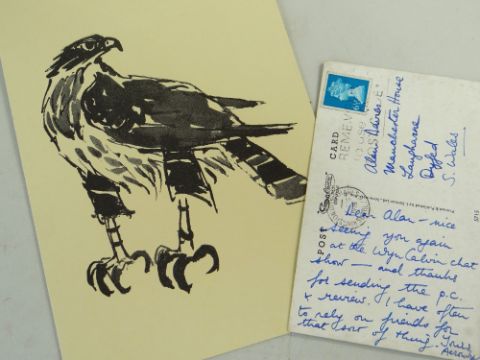 Alan Davies
Manchester House
Laugharne
Dyfed
S. Wales
POST CARD
REMEM
Dear Alan - nice
seeing you again
at the Wyn Calvin chat
show — and thanks
for sending the p.c.
x review. I have often
to rely on friends for
that sort of thing. Yours